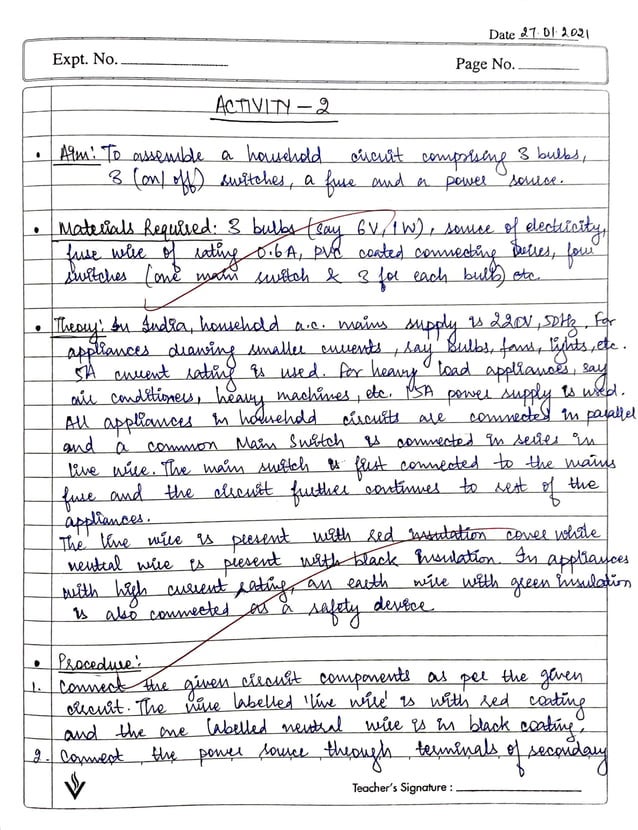 Date 27.01.2021
Expt. No.
Page No.
ACTIVITY - 2
• Aim: To assemble a household circuit comprising 3 bulbs,
3 (on/off) switches, a fuse and a power source.
• Materials Required: 3 bulbs (say 6V, 1W), source of electricity,
fuse wire of rating 0.6A, PVC coated connecting wires, four
switches (one main switch & 3 for each bulb) etc.
• Theory: In India, household a.c. mains supply is 220V, 50Hz. For
appliances drawing smaller currents, say bulbs, fans, lights, etc.
5A current rating is used. For heavy load appliances, say
air conditioners, heavy machines, etc. 15A power supply is used.
All appliances in household circuits are connected in parallel
and a common Main Switch is connected in series in
live wire. The main switch is first connected to the mains
fuse and the circuit further continues to rest of the
appliances.
The live wire is present with red insulation cover while
neutral wire is present with black insulation. In appliances
with high current rating, an earth wire with green insulation
is also connected as a safety device.
• Procedure:
1. Connect the given circuit components as per the given
circuit. The wire labelled 'live wire' is with red coating
and the one labelled neutral wire is in black coating.
2. Connect the power source through terminals of secondary
Teacher's Signature :